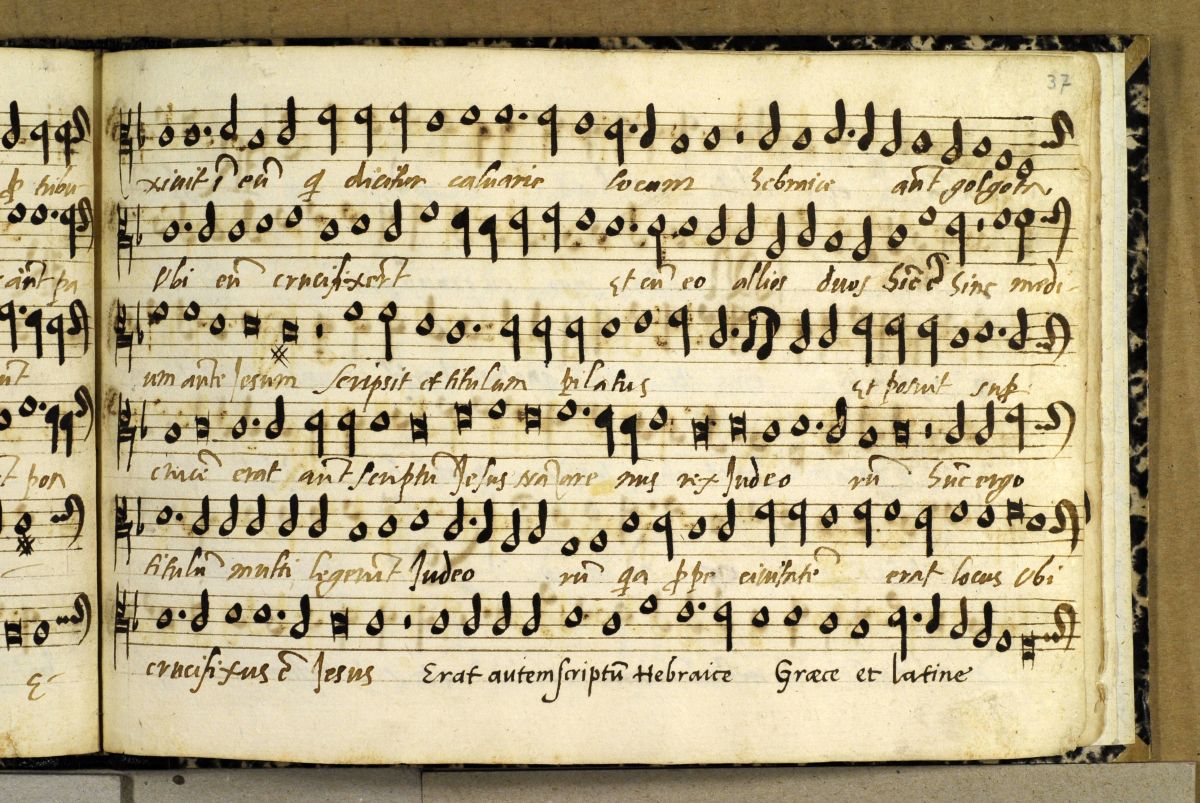 37
xivit ī eū qi dicitur calvarie locum hebraice aūt golgota
Ubi eū crucifixerūt Et cū eo allios duos hīc ē hinc medi-
um aūte Jesum scripsit et titulum pilatus Et posuit sup
crucē erat aūt scriptū Jesus nazare nus rex Judeo rū hūc ergo
titulū multi legerūt Judeo rū qia ppe civitatē erat locus Ubi
crucifixus ē Jesus Erat autem scriptū Hebraice Græce et latine